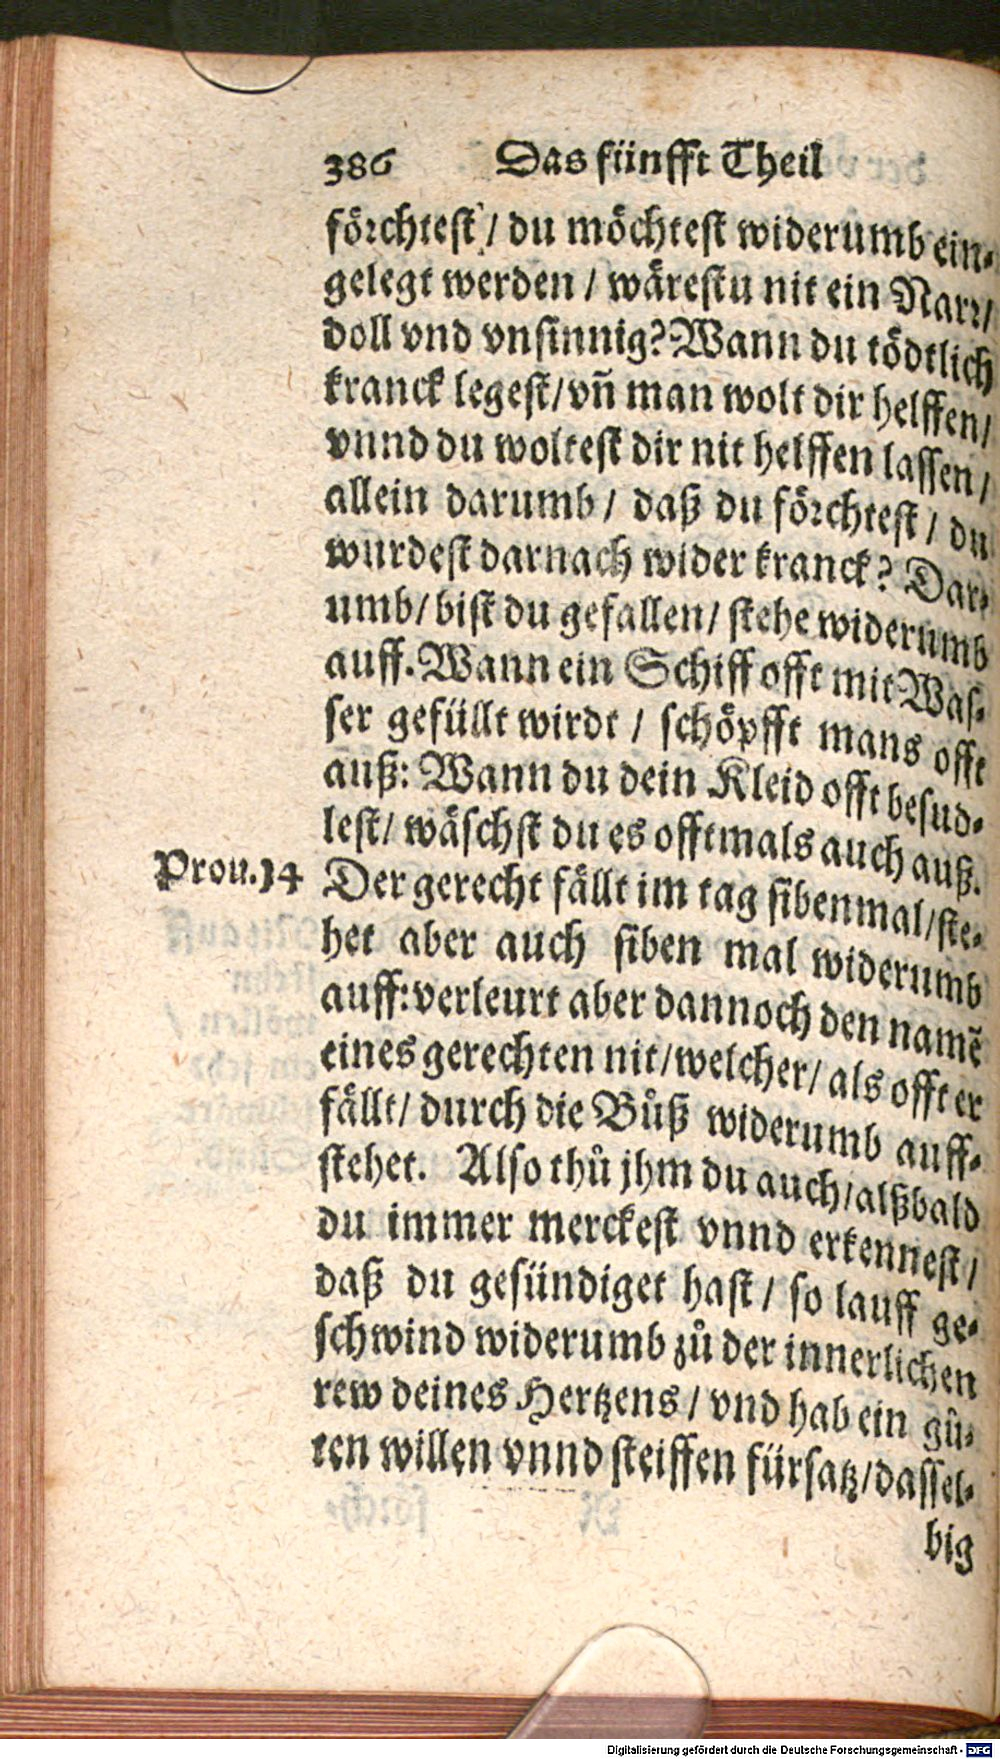 386 Das fünfft Theil
förchtest / du möchtest widerumb ein-
gelegt werden / wärestu nit ein Narr/
doll vnd vnsinnig? Wann du tödtlich
kranck legest/ vñ man wolt dir helffen/
vnnd du woltest dir nit helffen lassen /
allein darumb / daß du förchtest / du
wurdest darnach wider kranck? Dar-
umb/ bist du gefallen/ stehe widerumb
auff. Wann ein Schiff offt mit Was-
ser gefüllt wirdt / schöpfft mans offt
auß: Wann du dein Kleid offt besud-
lest/ wäschst du es offtmals auch auß.
Prou. 14 Der gerecht fällt im tag sibenmal/ ste-
het aber auch siben mal widerumb
auff: verleurt aber dannoch den namẽ
eines gerechten nit/ welcher/ als offt er
fällt/ durch die Bůß widerumb auff-
stehet. Also thů jhm du auch/ alßbald
du immer merckest vnnd erkennest /
daß du gesündiget hast / so lauff ge-
schwind widerumb zů der innerlichen
rew deines Hertzens / vnd hab ein gů-
ten willen vnnd steiffen fürsatz/ dassel-
big
Digitalisierung gefördert durch die Deutsche Forschungsgemeinschaft - DFG